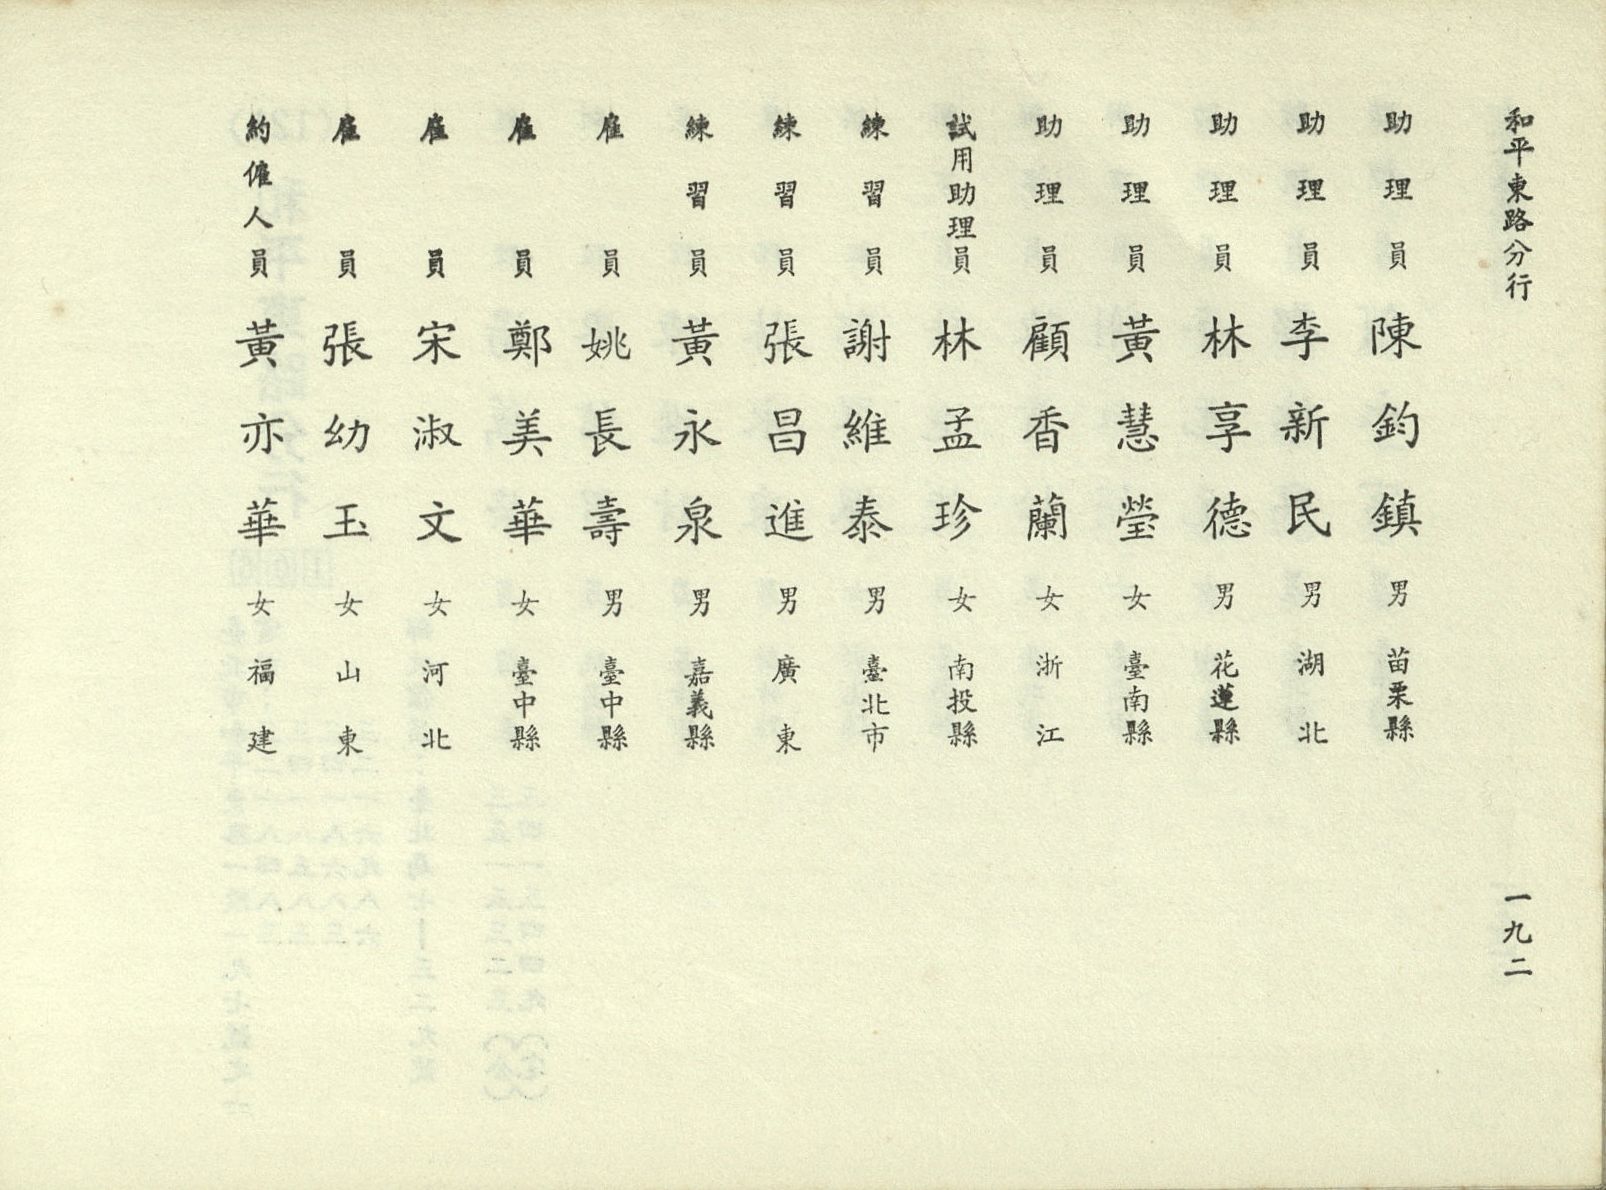 和平東路分行
一九二
助理員 陳鈞鎮 男 苗栗縣
助理員 李新民 男 湖北
助理員 林享德 男 花蓮縣
助理員 黃慧瑩 女 臺南縣
助理員 顧香蘭 女 浙江
試用助理員 林孟珍 女 南投縣
練習員 謝維泰 男 臺北市
練習員 張昌進 男 廣東
練習員 黃永泉 男 嘉義縣
雇員 姚長壽 男 臺中縣
雇員 鄭美華 女 臺中縣
雇員 宋淑文 女 河北
雇員 張幼玉 女 山東
約僱人員 黃亦華 女 福建